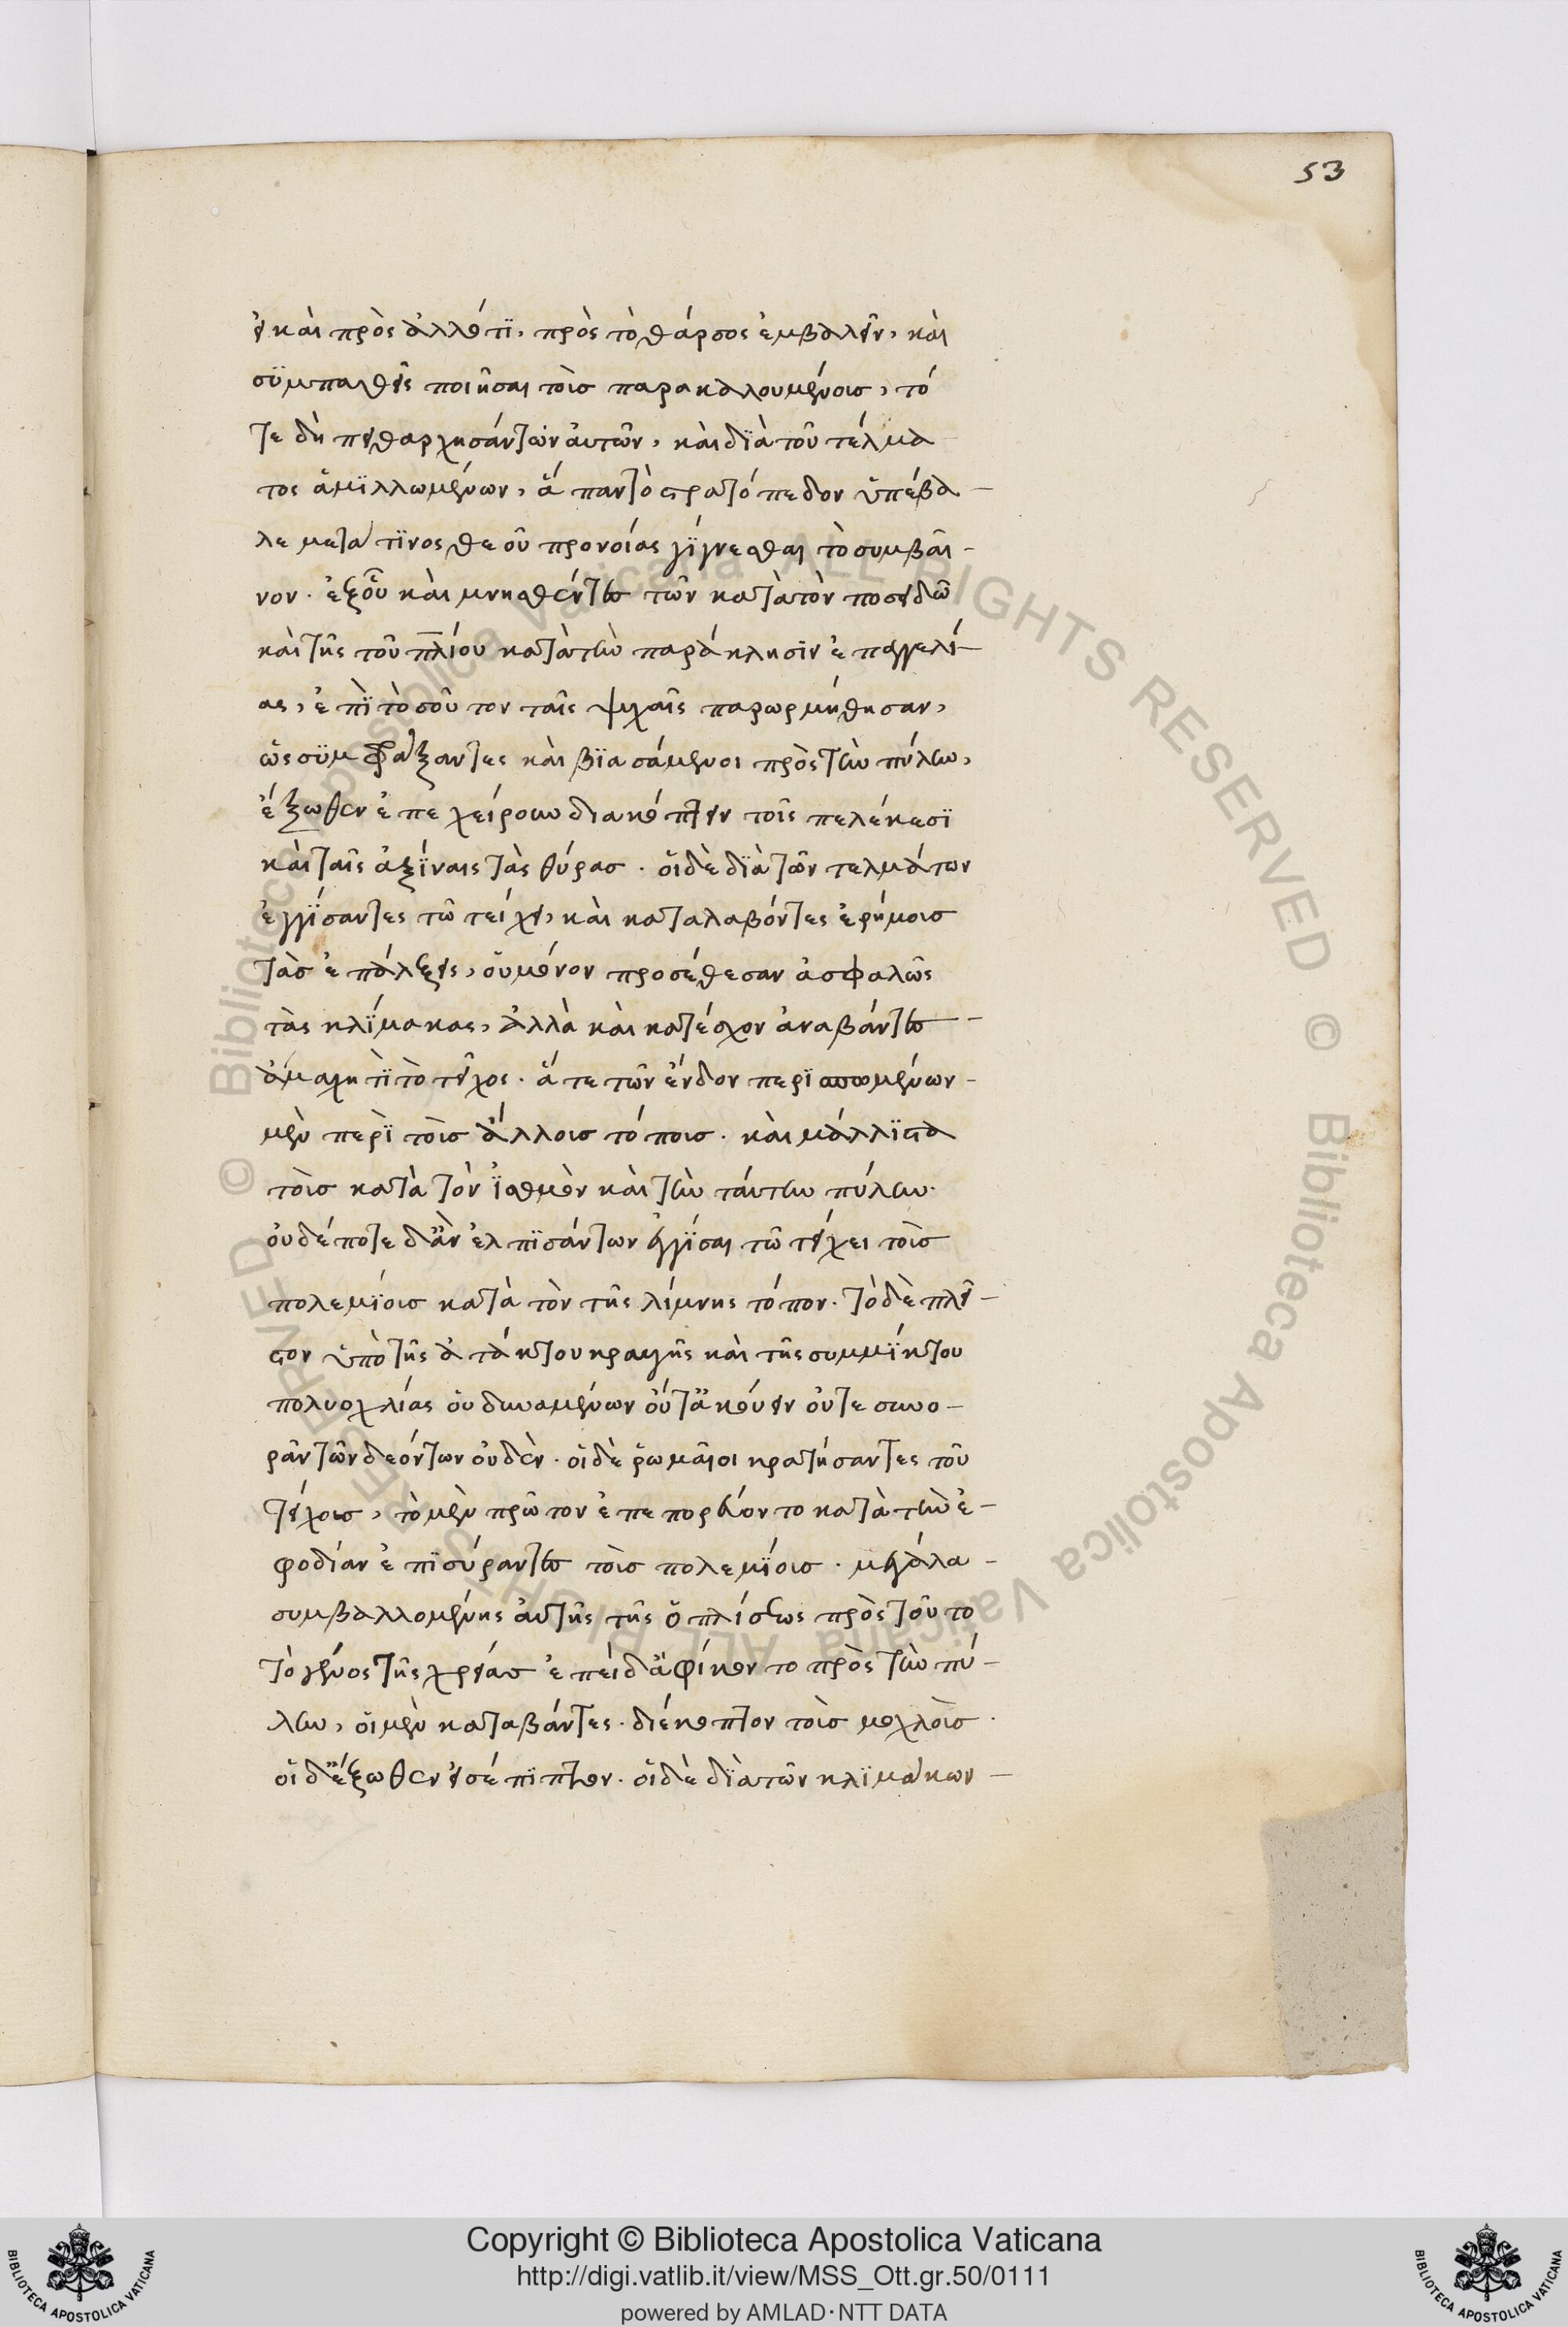 53
εἰ καὶ πρὸς ἄλλό τϊ, πρὸς τὸ θάρσος ἐμβαλεῖν, καὶ
σϋμπαθεῖς ποιῆσαι τοὶσ παρακαλουμένοισ, τό
τε δὴ πειθαρχησάντων ἀυτῶν, καὶ δϊὰ τοῦ τέλμα
τος ἁμϊλλωμένων, ἅπαν τὸ στρατόπεδον ὑπέβα-
λε μετά τϊνος θεοῦ προνοίας γίγνεσθαι τὸ συμβαῖ-
νον. ἐξοὗ καὶ μνησθέντες τῶν κατὰ τὸν ποσειδῶ
καὶ τῆς τοῦ πλίου κατὰ τὴν παράκλησϊν ἐπαγγελί-
ας, ἐπὶ τὸσοῦτον ταῖς ψυχαῖς παρωρμήθησαν,
ὡς σϋμφράξαντες καὶ βϊασάμενοι πρὸς τὴν πύλην,
ἔξωθεν ἐπεχείρουν διακόπτειν τοῖς πελέκεσϊ
καὶ ταῖς ἀξίναις τὰς θύρασ. οἱ δὲ δϊὰ τῶν τελμάτων
ἐγγίσαντες τῶ τείχει, καὶ καταλαβόντες ἐρήμουσ
τὰσ ἐπάλξεις, οὐ μόνον προσέθεσαν ἀσφαλῶς
τὰς κλίμακας, ἀλλὰ καὶ κατέσχον ἀναβάντες-
ἀμαχητὶ τὸ τεῖχος. ἅτε τῶν ἔνδον περϊσπωμένων-
μὲν περὶ τοὶσ ἄλλοισ τόποισ. καὶ μάλλϊστα
τοὶσ κατὰ τὸν ἰσθμὸν καὶ τὴν ταύτην πύλην.
οὐδέποτε δἂν ἐλπϊσάντων ἐγγίσαι τῶ τείχει τοὶσ
πολεμίοισ κατὰ τὸν τῆς λίμνης τόπον. τὸ δὲ πλεῖ-
στον ὑπὸ τῆς ἀτάκτου κραυγῆς καὶ τῆς συμμίκτου
πολυοχλίας οὐ δυναμένων οὔτἀκούειν οὔτε συνο-
ρᾶν τῶν δεόντων οὐδέν. οἱ δὲ ῥωμαῖοι κρατήσαντες τοῦ
τείχουσ, τὸ μὲν πρῶτον ἐπεπορεύοντο κατὰ τὴν ἐ-
φοδίαν ἐπϊσύραντες τοὶσ πολεμίοισ. μεγάλα-
συμβαλλομένης ἀυτῆς τῆς ὁπλίσεως πρὸς τοῦτο
τὸ γένος τῆς χρείασ ἐπεὶ δἀφίκοντο πρὸς τὴν πύ-
λην, οἱ μὲν καταβάντες. διέκοπτον τοὶσ μοχλοὶσ.
οἱ δἔξωθεν εἰσέπϊπτον. οἱ δὲ δϊὰ τῶν κλϊμάκων-
Copyright © Biblioteca Apostolica Vaticana
http://digi.vatlib.it/view/MSS_Ott.gr.50/0111
powered by AMLAD·NTT DATA
BIBLIOTECA APOSTOLICA VATICANA
BIBLIOTECA APOSTOLICA VATICANA
© Biblioteca Apostolica Vaticana ALL RIGHTS RESERVED
© Biblioteca Apostolica Vaticana ALL RIGHTS RESERVED